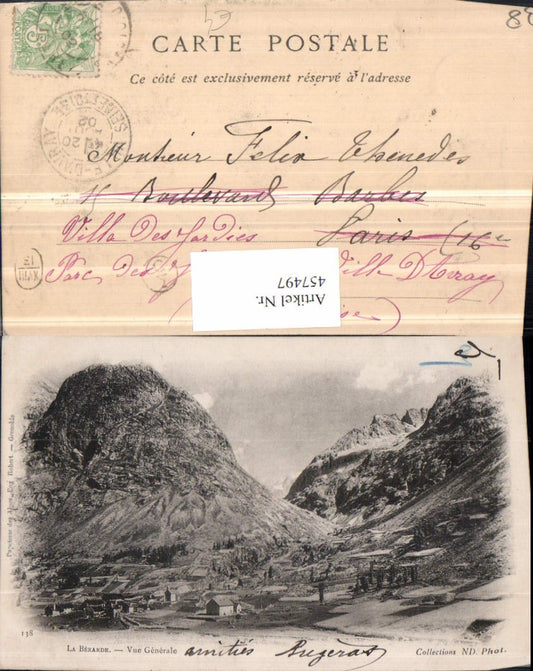 CARTE POSTALE
Ce côté est exclusivement réservé à l'adresse
Monsieur Felix Thenedes
15 Boulevard Barbes
Villa Des Jardies Paris (16e
Parc des Ville D'Avray
Artikel Nr.
457497
138
LA BÉRARDE. — Vue Générale amitiés
Collections ND. Phot.